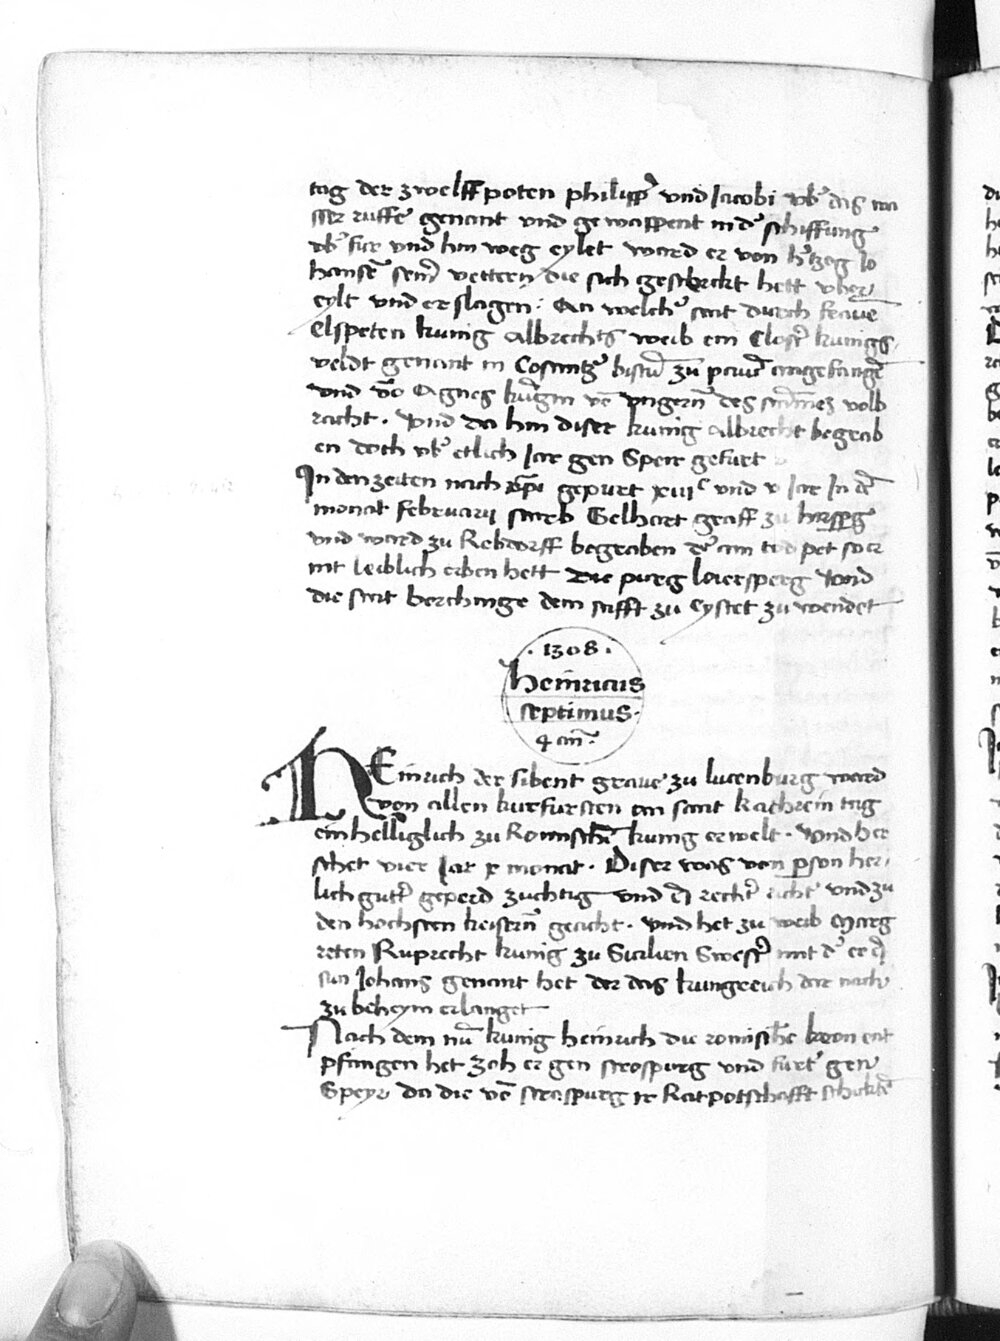 tag der zwelff poten philipp̃ vnd Jacobi vb̾ das wa
sser russe genant vnd gewappent in d̾ schiffung
vb̾ fur vnd hin weg eylet ward er von h̾tzog Jo
hansẽ seiñ vettern die sich gestrickt hett vber
eylt vnd erslagen: An welch̾ stat durch frawe
Elspeten kunig Albrechts weib ein Clost̾ kunigs
veldt genant in Costentz̾ bistũ zu pawẽ angefangẽ
vnd võ Agnes kuñgin võ vngern̄ des volb
racht. Vnd da hin diser kunig Albrecht begrab
en doch vb̾ etlich Jar gen Speir gefurt
In den zeiten nach xp̄i gepurt xiiiᶜ vnd v Jar In d̾
monat februarij starb Gebhart graff zu hirspg̾
vnd ward zu Rebdorff begraben d̾ am tod pet so er
nit leiblich erben hett Die purg hiersperg vnd
die stat berchinge dem stifft zu Eystet zu wendet
.1308.
heinricus
septimus.
HEinrich der sibent grave zu lucenburg ward
von allen kurfursten an sant kathrein tag
einhelliglich zu Romischẽ kunig erwelt. Vnd her
schet vier Jar x monat. Diser was von p̱son her
lich gut̾ geperd zuchtig vnd recht̾ richt̾ vnd zu
den hochsten keisern̄ geacht. vnd het zu weib Marg
reten Ruprecht kunig zu Sicilien Swest̾ mit d̾ er
sun Johans genant het der das kungreich dar nach
zu beheym erlanget
Nach dem nũ kunig heinrich die romisch̾e kron ent
pfangen het zoh er gen straspurg vnd furt̾ gen
Speyr da die võ straspurg ir Ratpotschafft schicktẽ